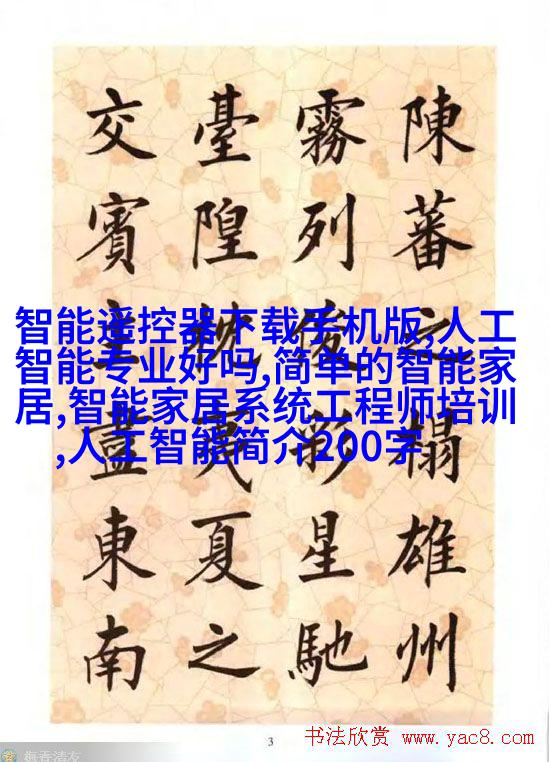 陳蕃之榻雄州
霧列俊彩星馳
臺隍枕夷夏之
交賓主盡東南
智能遥控器下载手机版,人工
智能专业好吗,简单的智能家
居,智能家居系统工程师培训
,人工智能简介200字
3
书法欣赏 www.yac8.com